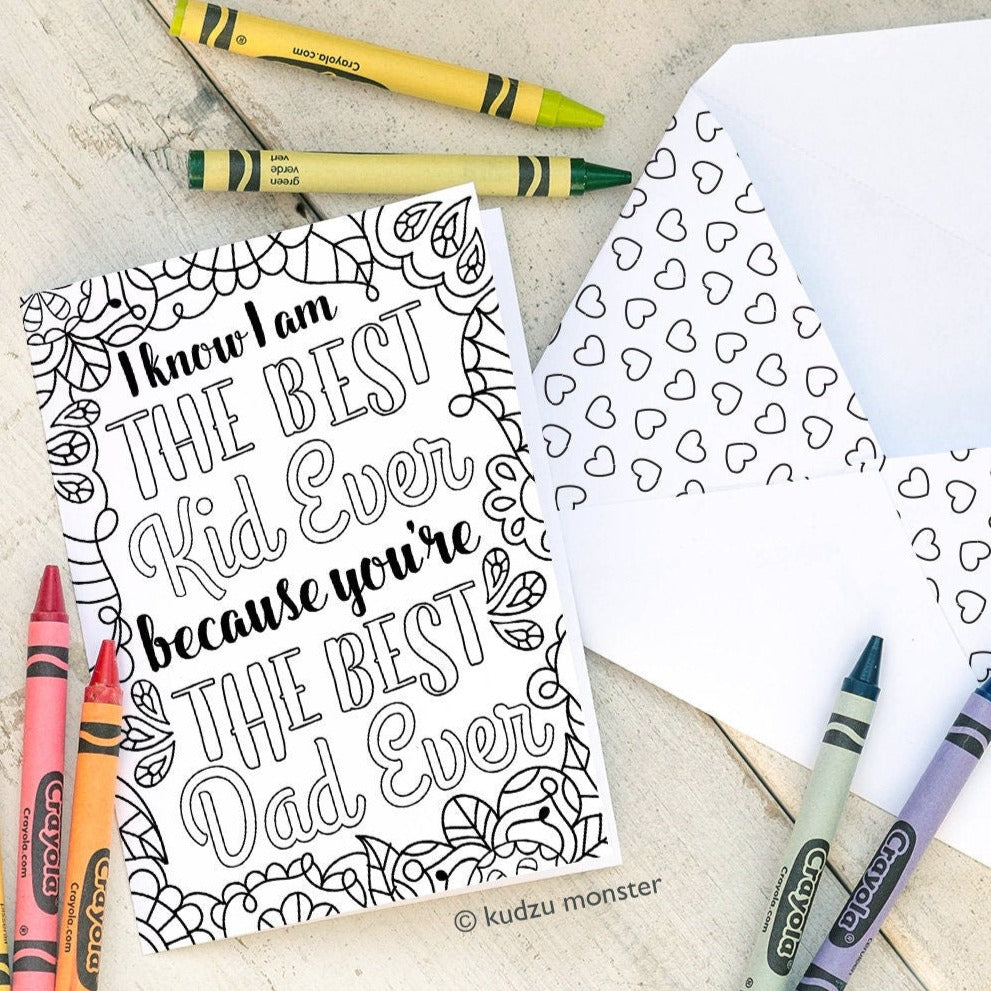 Crayola.com
®
vert
verde
green
I know I am
THE BEST
Kid Ever
because you're
THE BEST
Dad Ever
Crayola
Crayola.com
Crayola
Crayola.com
Crayola
Crayola.com
Crayola®
© kudzu monster